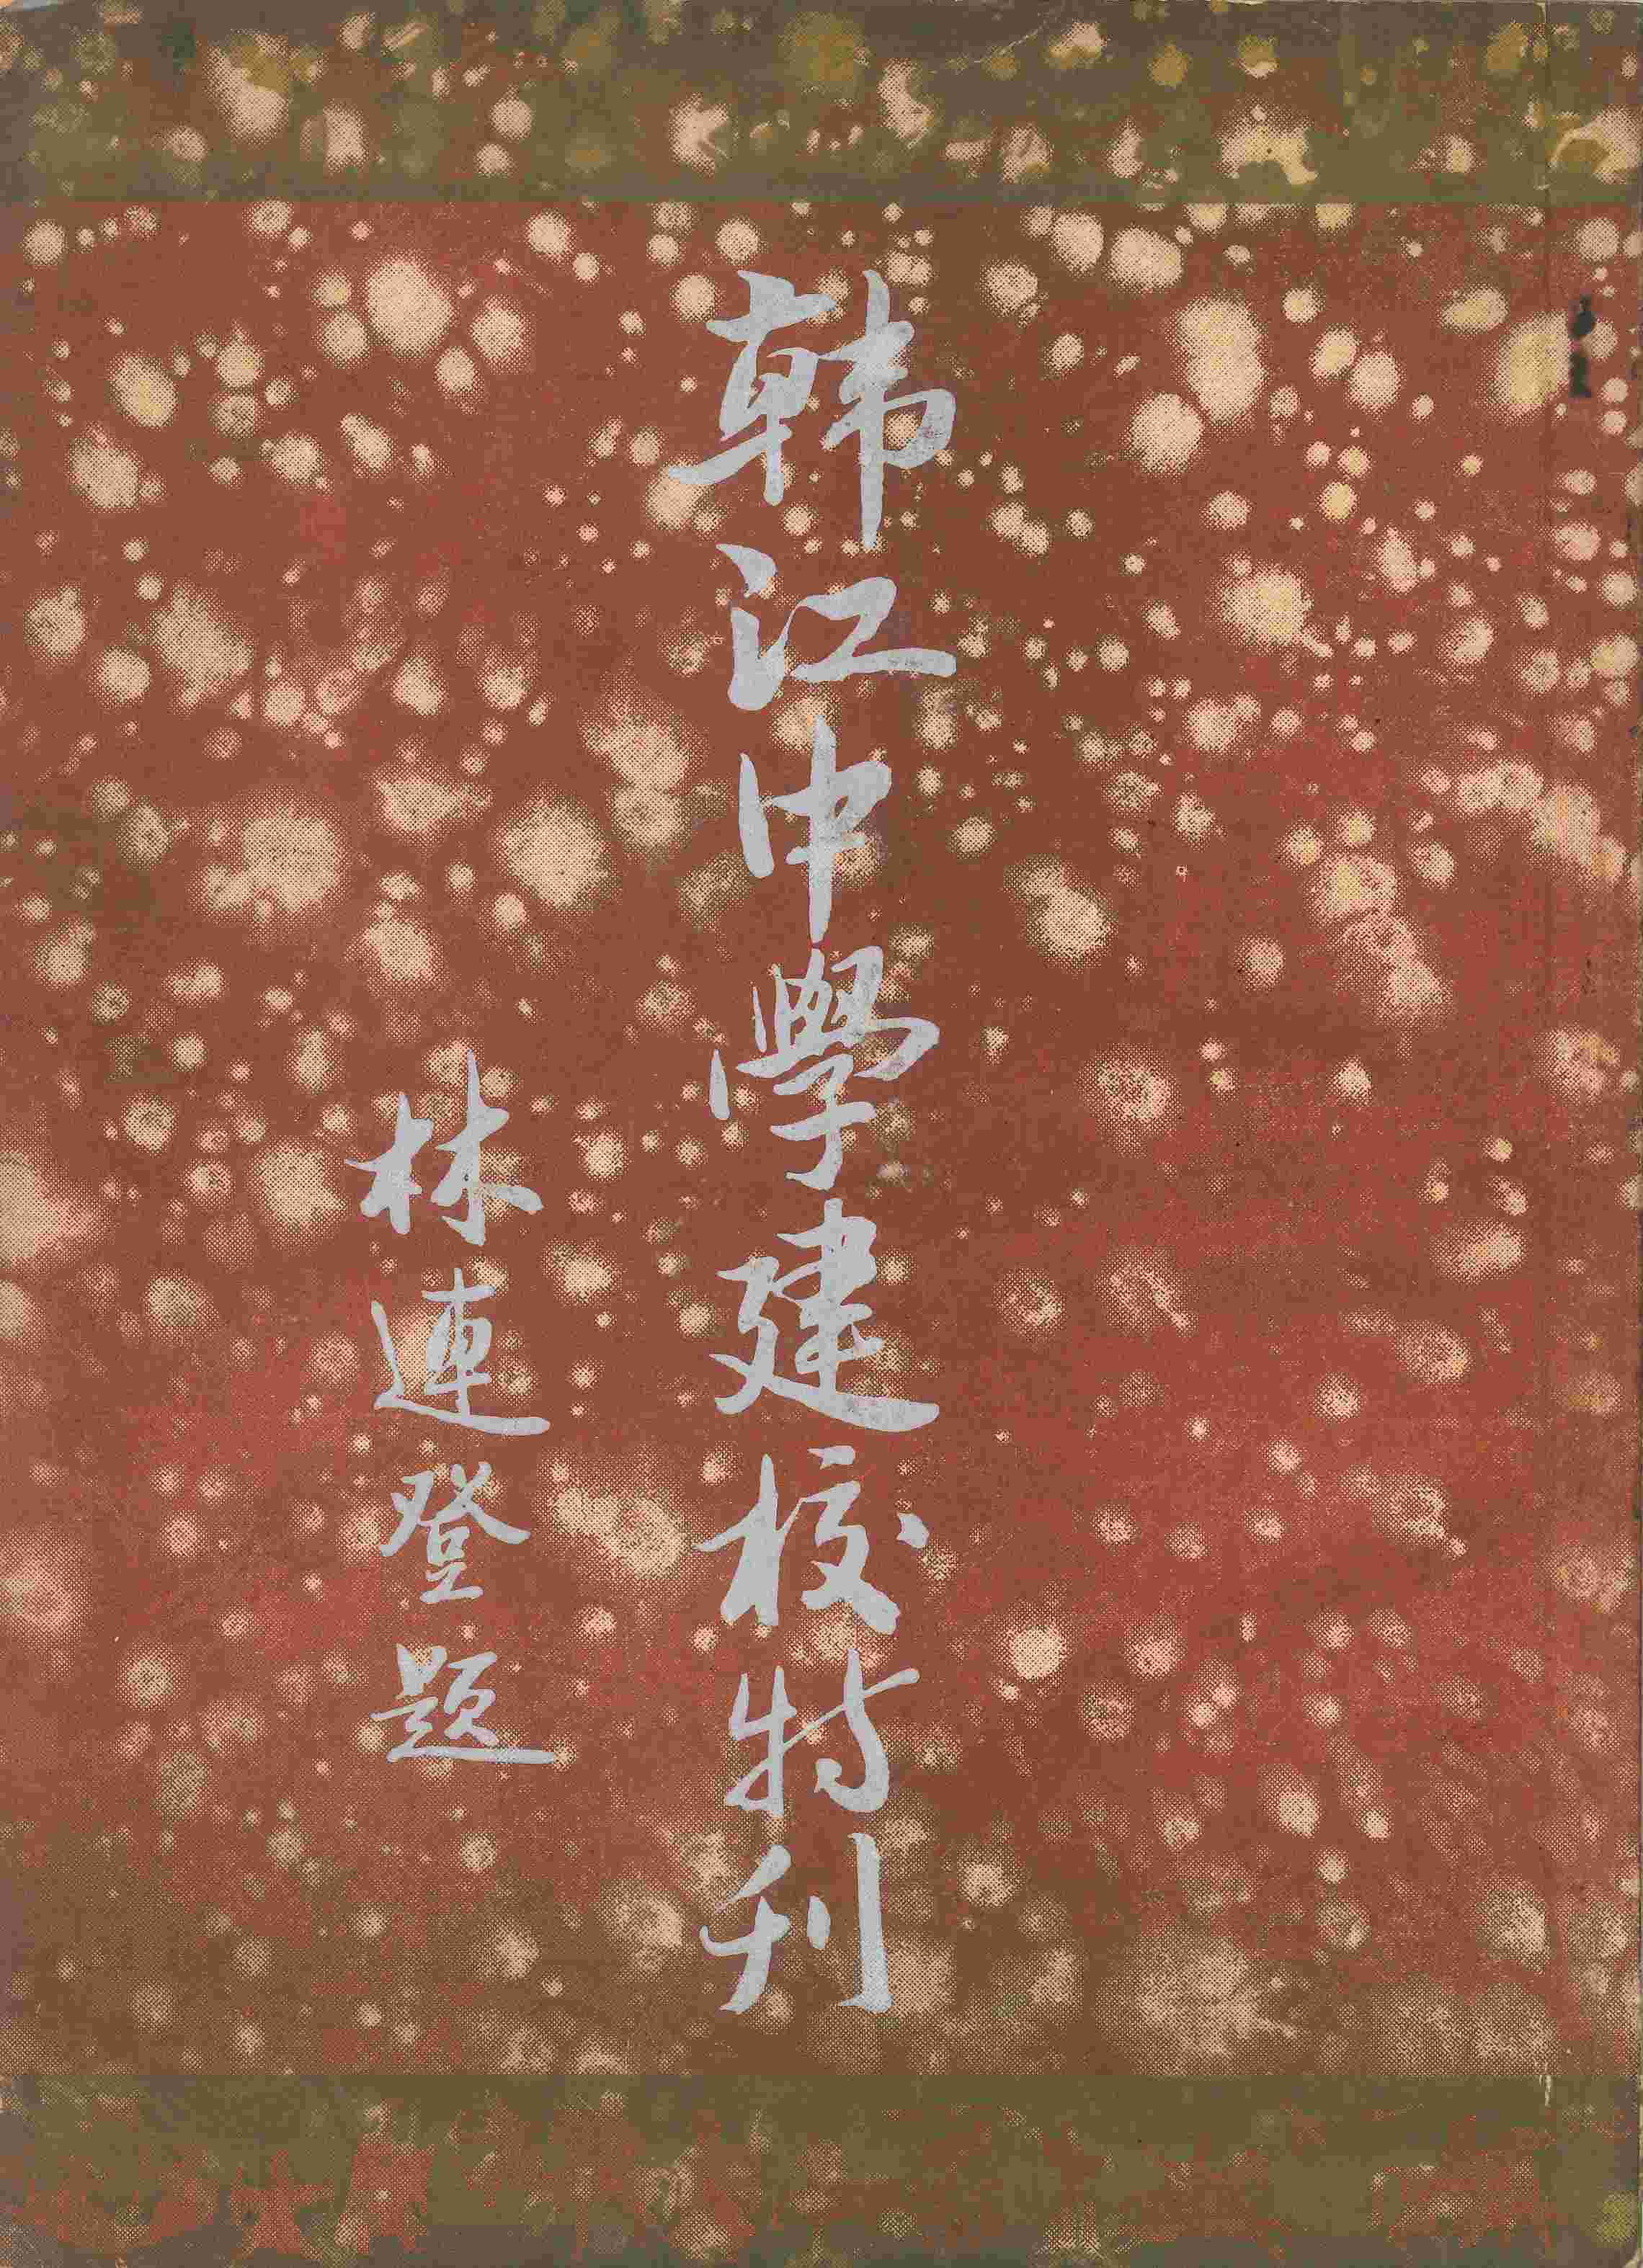 韩江中學建校特刊
林連登題